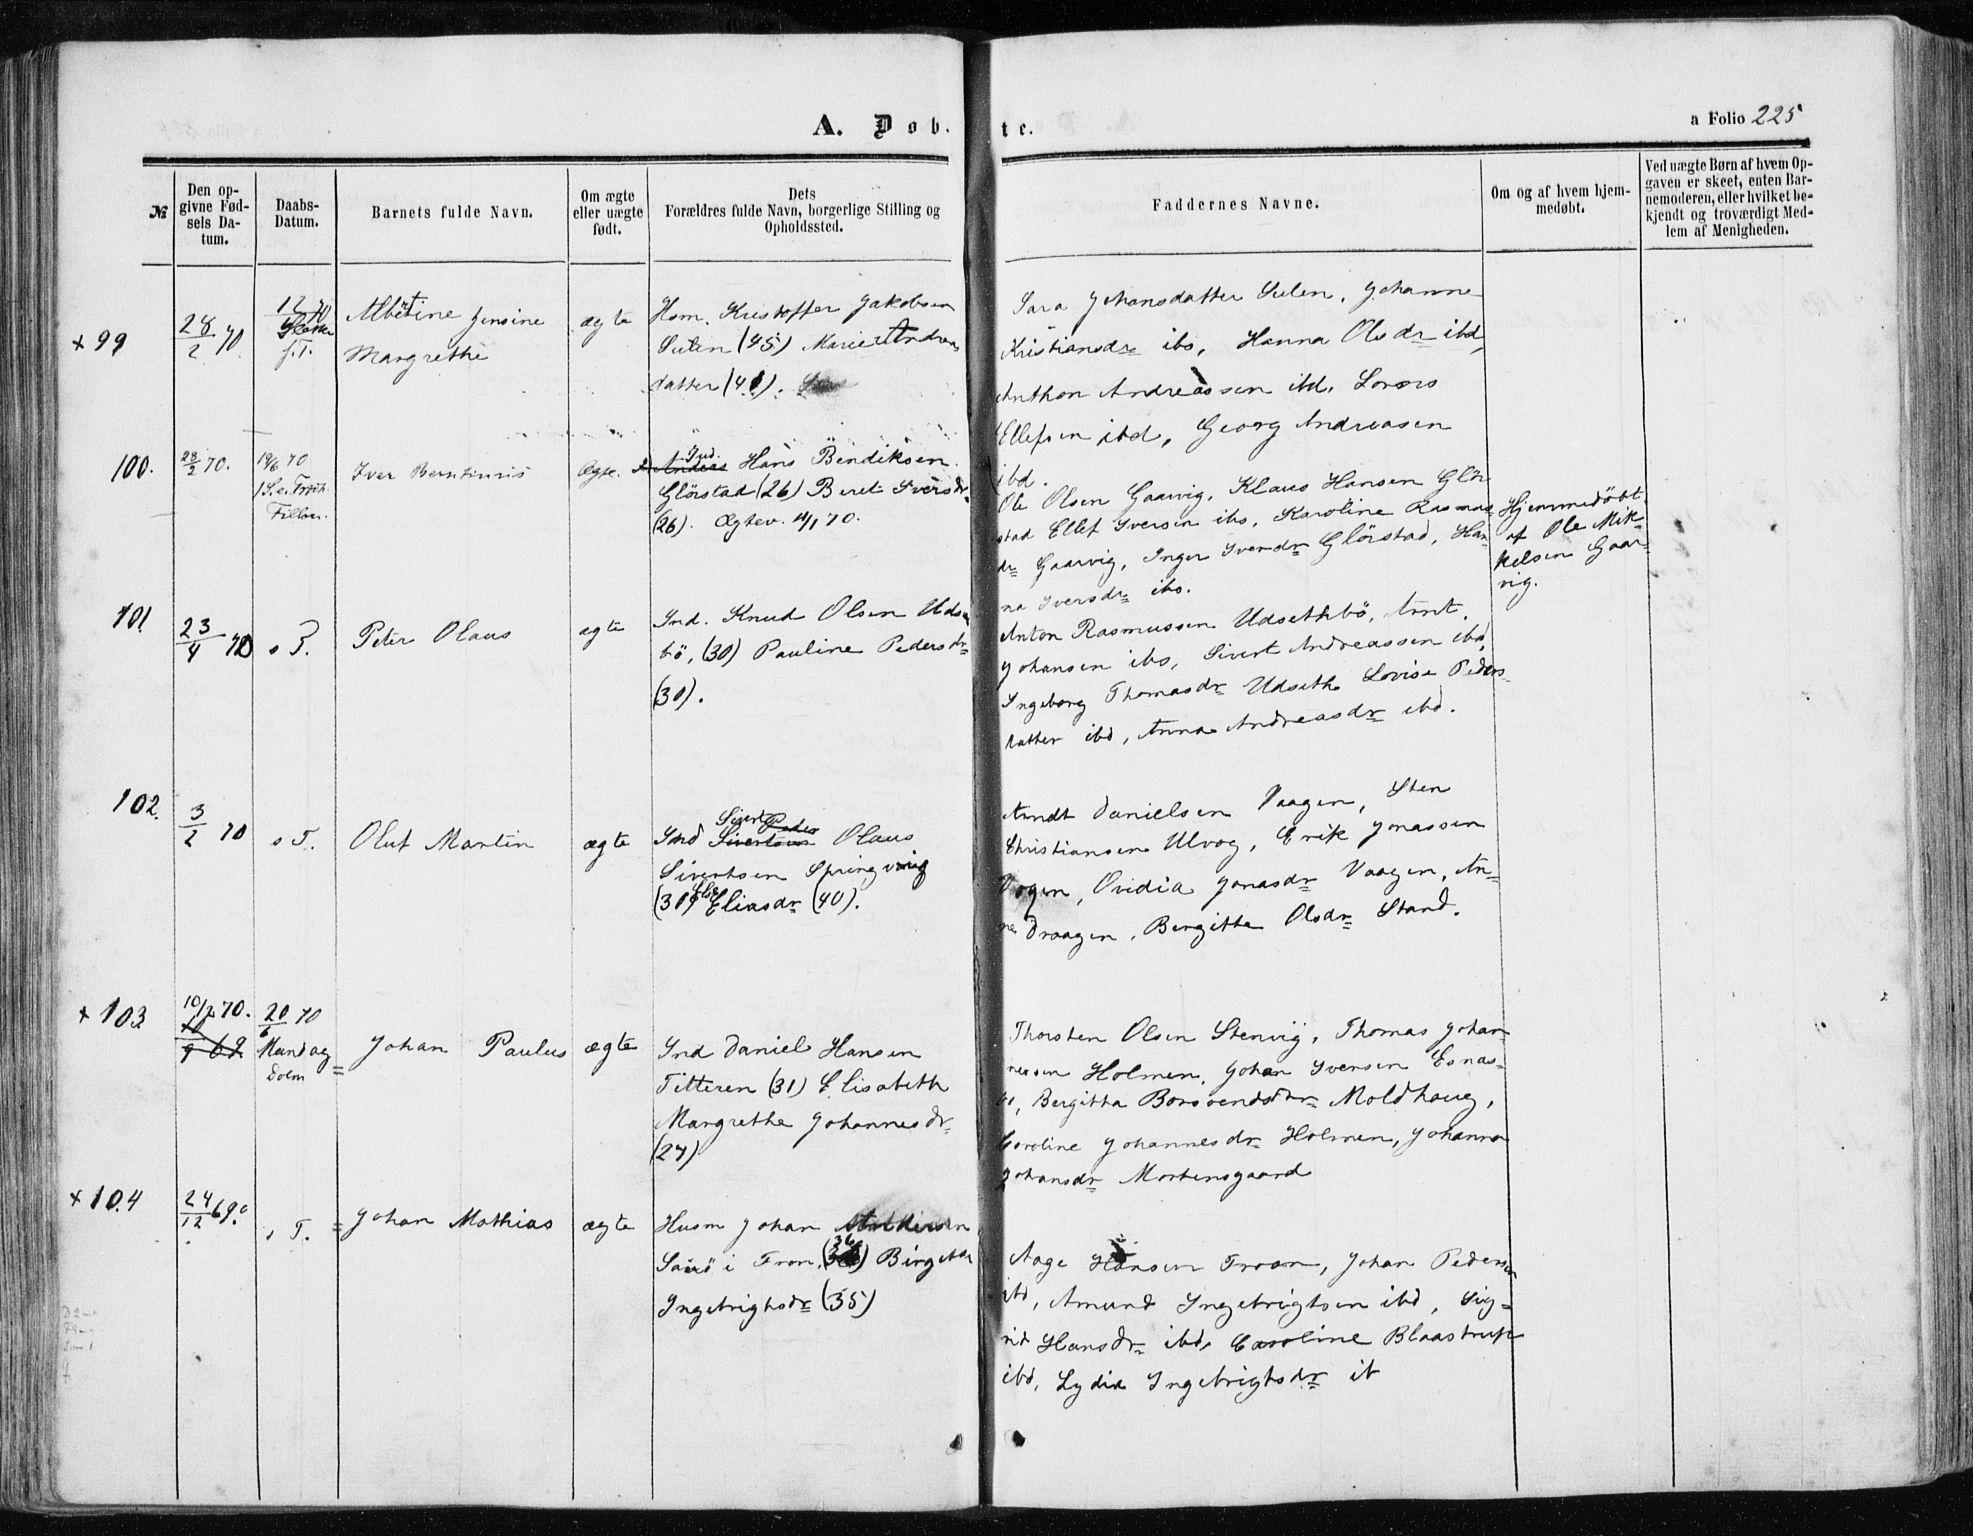 A. Døb-
te.
a Folio 225
№
Den op-
givne Fød-
sels Da-
tum.
Daabs-
Datum.
Barnets fulde Navn.
Om ægte
eller uægte
født.
Dets
Forældres fulde Navn, borgerlige Stilling og
Opholdssted.
Faddernes Navne.
Om og af hvem hjem-
medøbt.
Ved uægte Børn af hvem Op-
gaven er skeet, enten Bar-
nemoderen, eller hvilket be-
kjendt og troværdigt Med-
lem af Menigheden.
x 99
28/2 70
Albertine Jensine
Margrethe
ægte
Hsm. Kristoffer Jakobsen
Sulen (45) Marie Andreas
datter (41).
Sara Johansdatter Sulen, Johanne
Kristiansdr ibs, Hanna Olsdr ibd,
Anthon Andreassen ibd, Lorens
Ellefsen ibd, Georg Andreasen
ibd.
100.
28/2 70.
19/6 70
Iver Berntinus
Ægte.
Ind.
Hans Bendiksen
Glörstad (26) Beret Iversdr
(26). Ægtev. 4/1 70.
Ole Olsen Gaarvig, Klaus Hansen Glör
stad Ellef Iversen ibs, Karoline Rasmus
dr Gaarvig, Inger Iversdr Glörstad, Han
na Iversdr ibs.
Hjemmedöbt
af Ole Mik-
kelsen Gaar-
vig.
101.
23/4 70
s T.
Peter Olaus
ægte
Ind. Knud Olsen Uds
bö, (30) Pauline Pedersdr
(30).
Anton Rasmussen Udsethbö, Arnt
Johansen ibs, Sivert Andreassen ibd,
Ingeborg Thomasdr Udseth Lovise Peders
datter ibd, Anna Andreasdr ibd.
102.
3/2 70
s T.
Oluf Martin
ægte
Ind Olaus
Sivertsen Springvig
Eliasdr (40).
Arndt Danielsen Vaagen, Sten
Christiansen Ulvog, Erik Jonassen
Vogen, Ovidia Jonasdr Vaagen, An-
ne Draagen, Bergitte Olsdr Stand.
x 103
10/2 70.
20/6 70
Mandag
Dolm
Johan Paulus
ægte
Ind Daniel Hansen
Titteren (31) Elisabeth
Margrethe Johannesdr
(27)
Thorsten Olsen Stenvig, Thomas Johan
nessen Holmen, Johan Iversen Esnas-
Bergitta Moldhaug,
Caroline Johannesdr Holmen, Johanna
Johansdr Mortensgaard
x 104
24/12 69.
s T.
Johan Mathias
ægte
Husm Johan
i Fron, (36) Birgitte
Ingebrigtsdr (35)
Aage Hansen Froan, Johan Pedersen
ibd, Amund Ingebrigtsen ibd, Sig-
rid Hansdr ibd, Caroline Blaastrup
ibd, Lydia Ingebrigtsdr ib